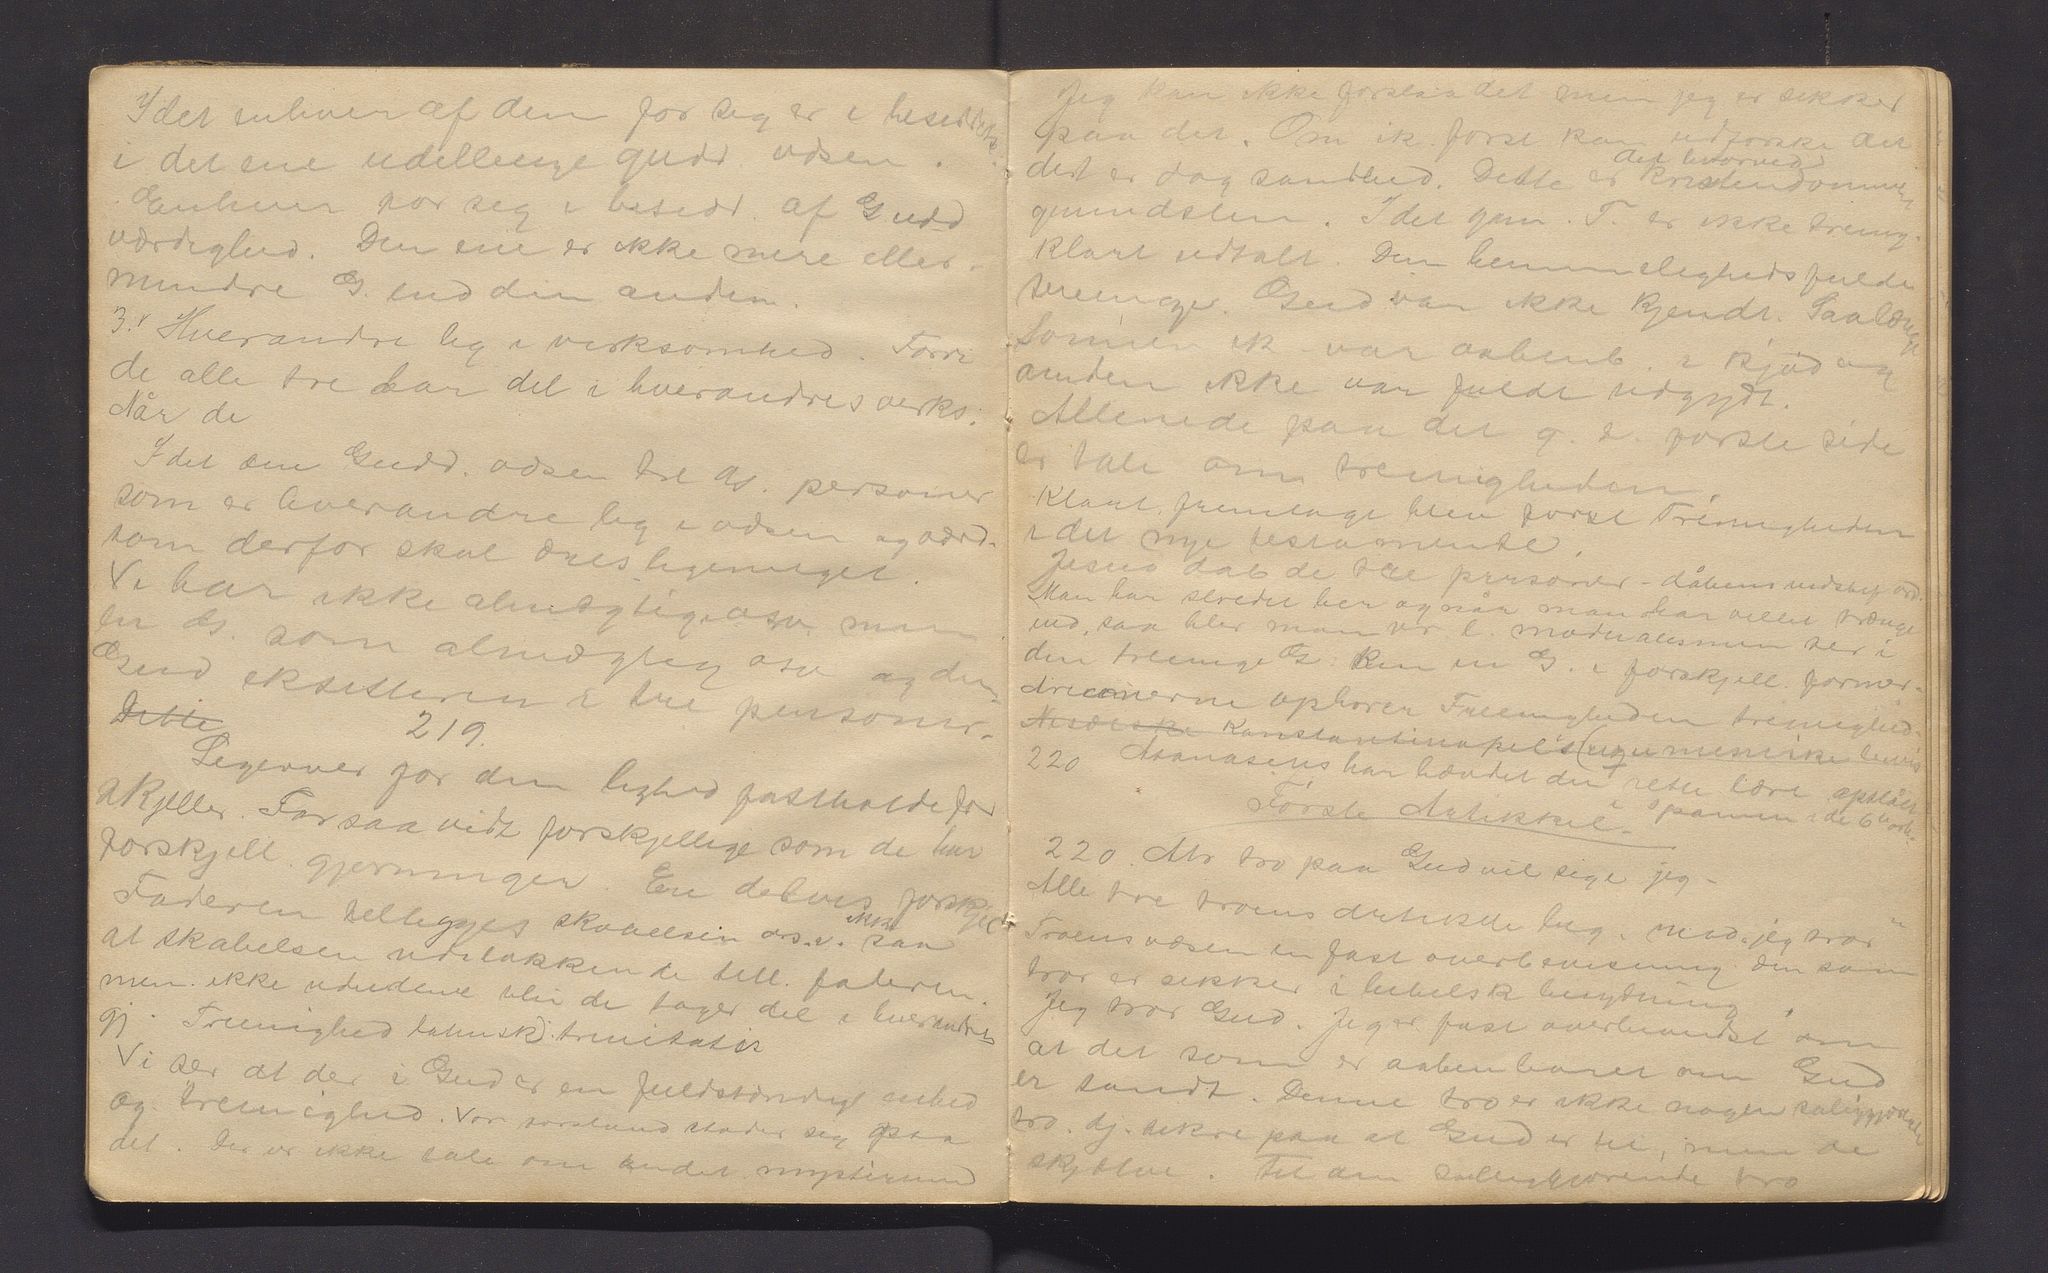 I det enhver af dem for sig er i besiddelse
i det ene udellelige gudd. væsen.
Enhver for seg i besidd. af Gudd
værdighed. Den ene er ikke mere eller
mindre G. end den anden.
3. Hverandre lig i virksomhed. Fordi
de alle tre har del i hverandres verks.
Når de
I det ene Gudd. væsen tre ds. personer
som er hverandre lig i væsen og værd.
som derfor skal æres ligemeget.
Vi har ikke almægtige osv. men
en ds. som almægtig osv og den
Gud eksisterer i tre personer.
Dette
219.
Ligeover for den lighed fastholde for
skjeller. For saa vidt forskjellige som de har
forskjell. gjerninger. En delvis forskjel
Faderen tillegges skabelsen o.s.v. ikke saa
at skabelsen udelukkende till. faderen.
men ikke udelukke de tager del i hverandres
gj. Treenighed latinsk: trinitatis
Vi ser at der i Gud er en fuldstændig enhed
og treenighed. Vor forstand støder sig paa
det. Der er ikke tale om andet mysterium
Jeg kan ikke forstaa det men jeg er sikker
paa det. Om ik. først kan udforske det
det er dog sandhed. Dette er det hvorved kristendommens
grundsten. I det gam. T. er ikke treenig.
klart udtalt. Den hemmelighedsfulde
treenige Gud var ikke kjendt. Saalænge
Sønnen ik. var aabenb. i kjød og
anden ikke var fuldt udgydt.
Allerede paa det g. t. første side
er tale om treenigheden.
Klart fremlagt blev først Treenigheden
i det nye testamente.
Jesus dåb de tre personer - dåbens indstif. ord.
Man har stredet her og når man har villet trænge
ind, saa blev man modalismen ser i
den treenige G. kun en G. i forskjell. former.
Arianerne ophæver Treenigheden treenighed.
Nicæiske Konstantinopels
220 Atanasius har hævdet den rette lære opstået
i Spanien i de 6 aarh.
Første Artikkel.
220. At tro paa Gud vil sige jeg -
Alle tre troens artikler beg. med „jeg tror“
Troens væsen en fast overbevisning. Den som
tror er sikker i bibelsk betydning.
Jeg tror Gud. Jeg er fast overbevist om
at det som er aabenbaret om Gud
er sandt. Denne tro er ikke nogen saliggjørende
tro. dj. tekre paa at Gud er til, men de
skjælve. Til den saliggjørende tro